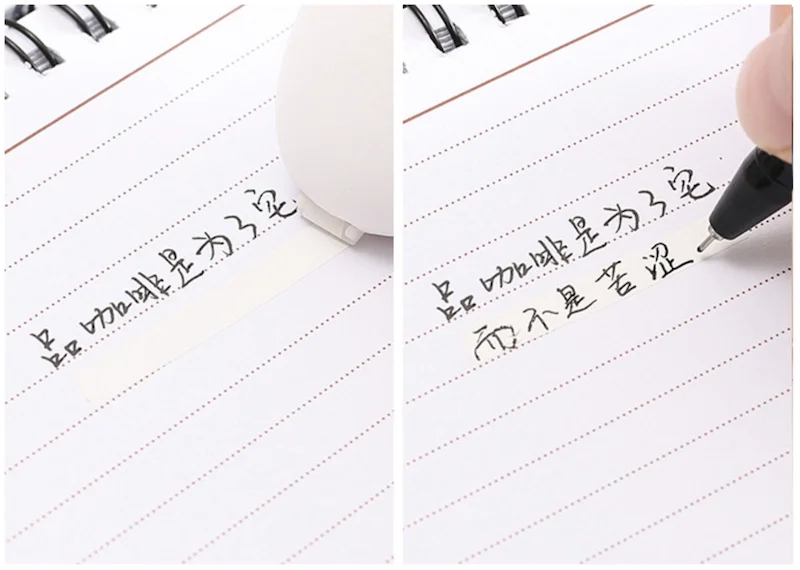 品咖啡是为了宅
品咖啡是为了宅
而不是苦涩